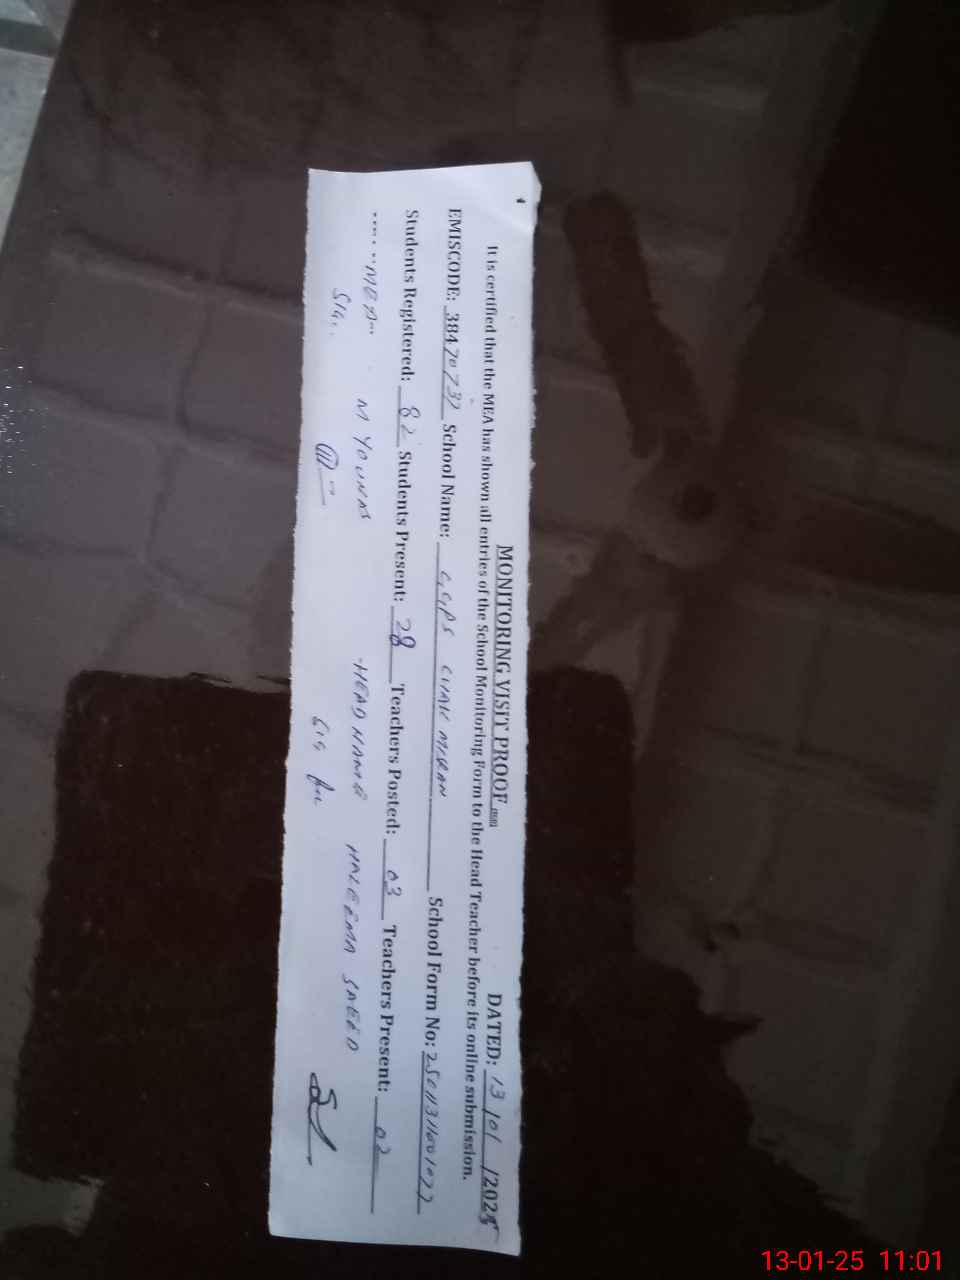 MONITORING VISIT PROOF DATED: 13/01/2025
It is certified that the MEA has shown all entries of the School Monitoring Form to the Head Teacher before its online submission.
EMISCODE: 38470737 School Name: GGPS CHAK MIRAN School Form No:
Students Registered: 82 Students Present: 28 Teachers Posted: 03 Teachers Present: 02
MEA M YOUNAS HEAD NAME HALEEMA SAEED
SIG. SIG
13-01-25 11:01